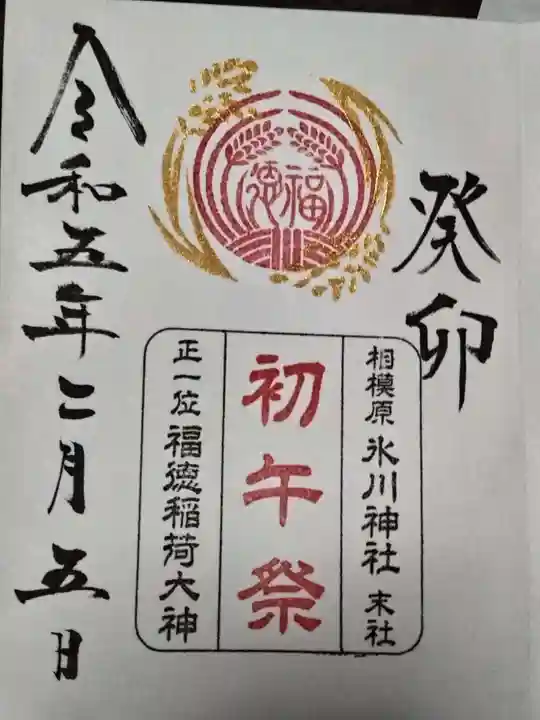 癸卯
福徳
相模原 氷川神社 末社
初午祭
正一位 福徳稲荷大神
令和五年二月五日